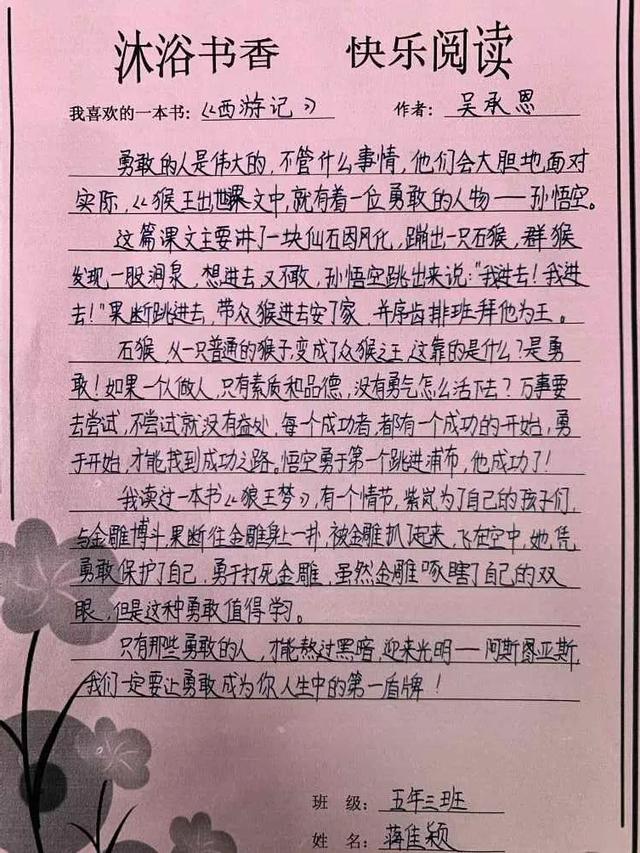 沐浴书香 快乐阅读
我喜欢的一本书:《西游记》 作者: 吴承恩
勇敢的人是伟大的,不管什么事情,他们会大胆地面对
实际,《猴王出世》课文中,就有着一位勇敢的人物——孙悟空。
这篇课文主要讲了一块仙石因风化,蹦出一只石猴,群猴
发现一股涧泉,想进去又不敢,孙悟空跳出来说:"我进去!我进
去!"果断跳进去,带众猴进去安了家,并序齿排班,拜他为王。
石猴,从一只普通的猴子,变成了众猴之王,这靠的是什么?是勇
敢!如果一个人做人,只有素质和品德,没有勇气怎么活下去?万事要
去尝试,不尝试就没有益处,每个成功者,都有一个成功的开始,勇
于开始,才能找到成功之路。悟空勇于第一个跳进浦布,他成功了!
我读过一本书《狼王梦》,有一个情节,紫岚为了自己的孩子们,
与金雕博斗,果断往金雕身上一扑,被金雕扒了起来,飞在空中,她凭
勇敢保护了自己,勇于打死金雕,虽然金雕啄瞎了自己的双
眼,但是这种勇敢值得学习。
只有那些勇敢的人,才能熬过黑暗,迎来光明——阿斯图亚斯,
我们一定要让勇敢成为你人生中的第一盾牌!
班 级: 五年三班
姓 名: 蒋佳颖